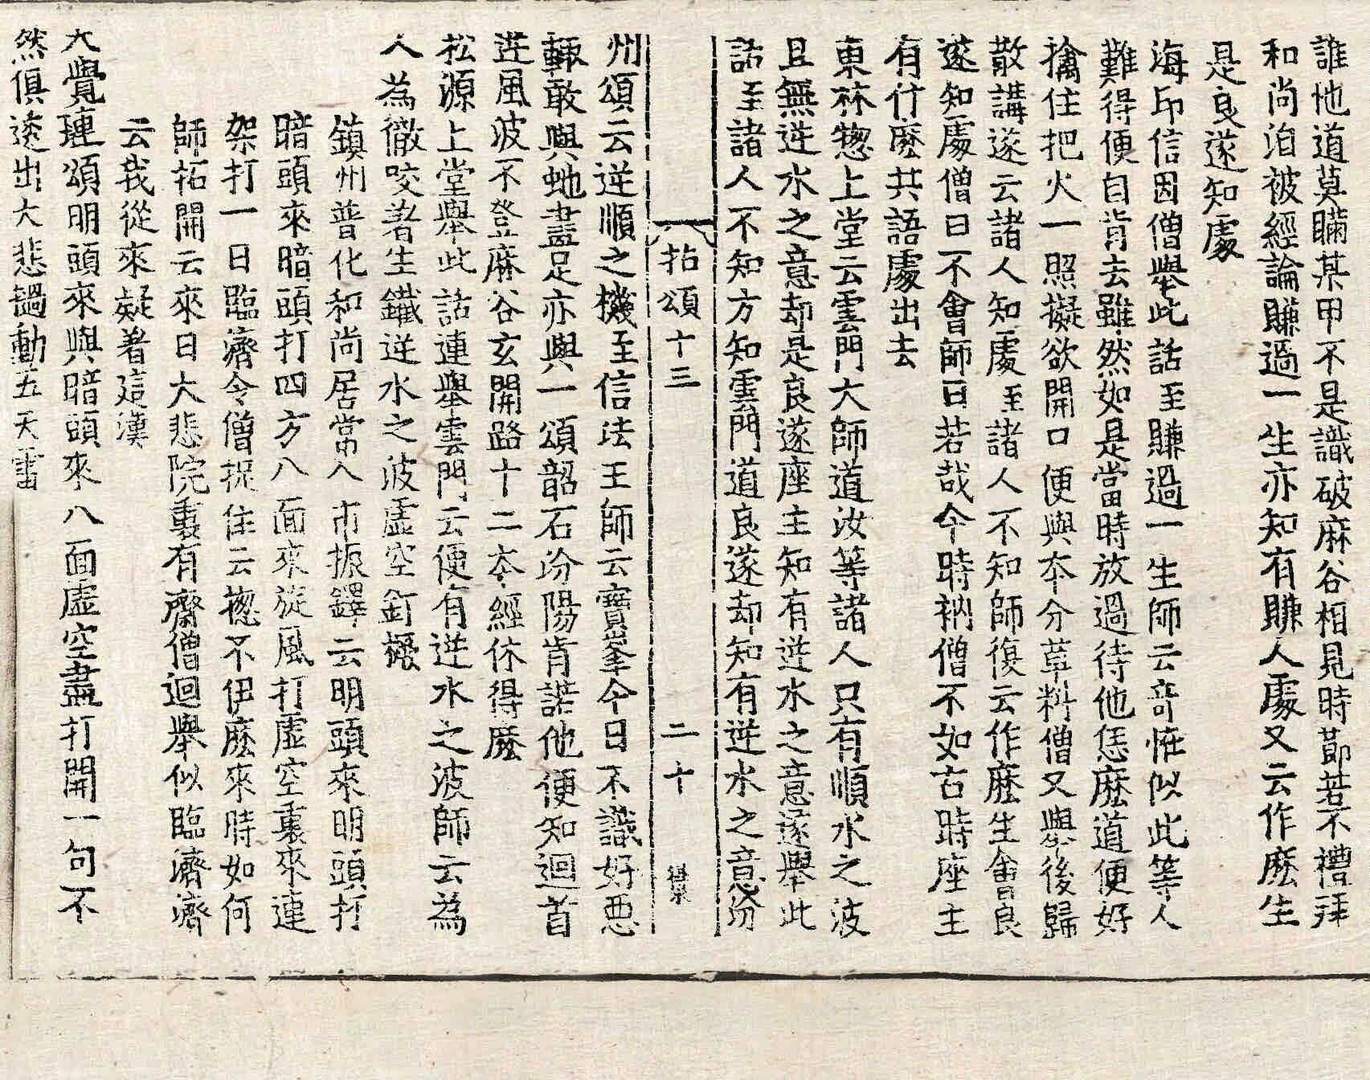 誰他道莫瞞某甲不是識破麻谷相見時節若不禮拜
和尚洎被經論賺過一生亦知有賺人處又云作麽生
是良遂知處
海印信因僧擧此話至賺過一生師云竒恠似此等人
難得便自肯去雖然如是當時放過待他恁麽道便好
擒住把火一照擬欲開口便與本分草料僧又擧後歸
散講遂云諸人知處至諸人不知師復云作麽生會良
遂知處僧曰不會師曰若哉今時衲僧不如古時座主
有什麽共語處出去
東林惣上堂云雲門大師道汝等諸人只有順水之波
且無逆水之意却是良遂座主知有逆水之意遂擧此
話至諸人不知方知雲門道良遂却知有逆水之意汾
拈頌十三 二十
州頌云逆順之機至信法王師云寶峯今日不識好惡
輙敢與虵畫足亦與一頌韶石汾陽肯諾他便知迴首
逆風波不登麻谷玄開路十二夲經休得麽
松源上堂擧此話連擧雲門云便有逆水之波師云為
人為徹咬著生鐵逆水之波虛空釘橛
鎮州普化和尚居常入市振鐸云明頭來明頭打
暗頭來暗頭打四方八面來旋風打虛空裏來連
架打一日臨濟令僧捉住云揔不伊麽來時如何
師拓開云來日大悲院裏有齋僧迴擧似臨濟濟
云我從來疑著這漢
大覺璉頌明頭來與暗頭來八面虛空盡打開一句不
然俱透出大悲䭔動五天雷